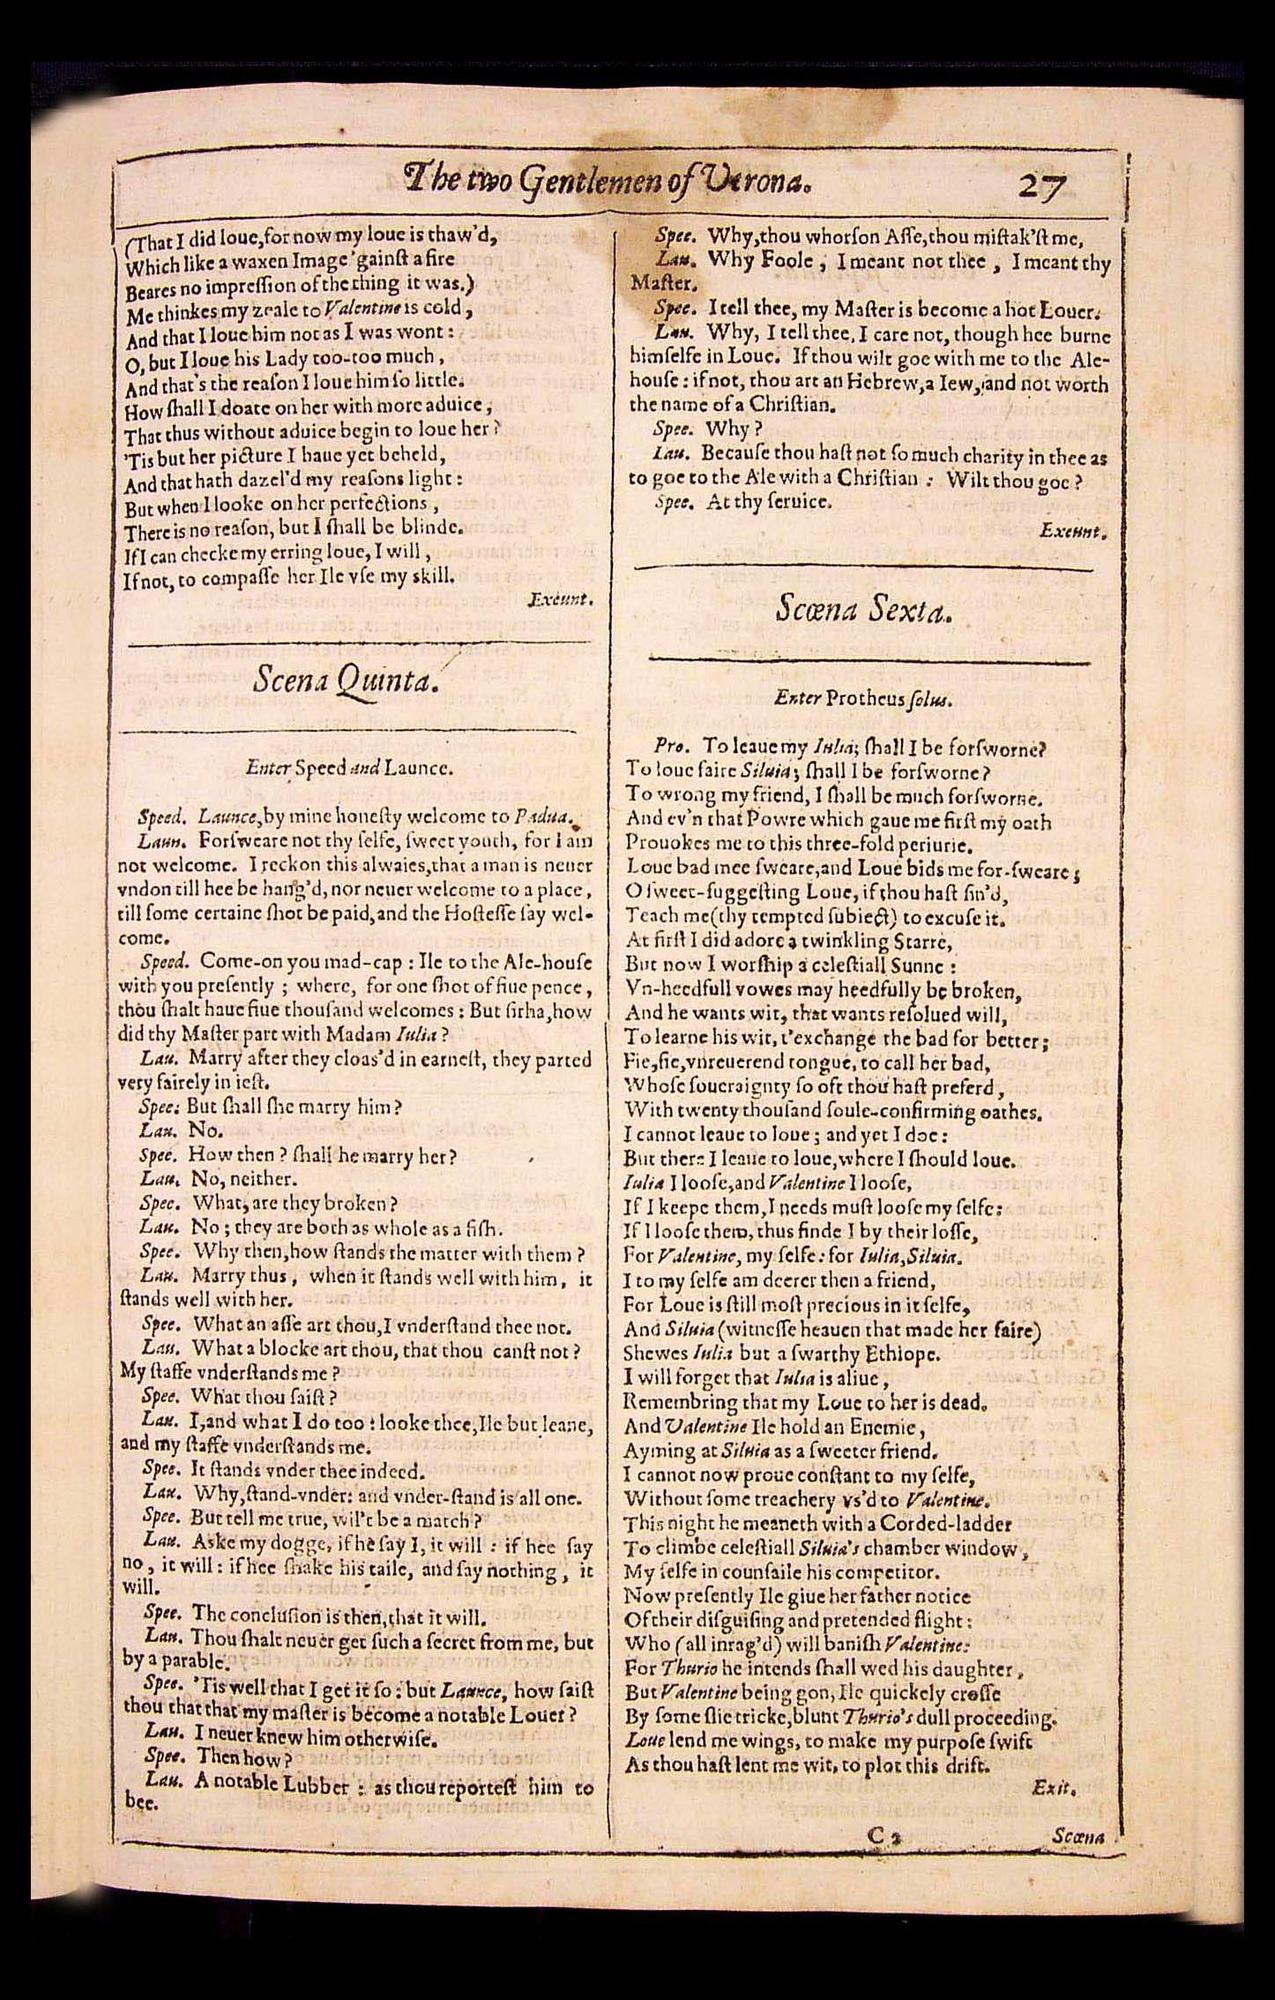 The two Gentlemen of Verona. 27
(That I did loue, for now my loue is thaw'd,
Which like a waxen Image 'gainſt a fire
Beares no impreſſion of the thing it was.)
Me thinkes my zeale to Valentine is cold,
And that I loue him not as I was wont:
O, but I loue his Lady too-too much,
And that's the reaſon I loue him ſo little.
How ſhall I doate on her with more aduice,
That thus without aduice begin to loue her?
'Tis but her picture I haue yet beheld,
And that hath dazel'd my reaſons light:
But when I looke on her perfections,
There is no reaſon, but I ſhall be blinde.
If I can checke my erring loue, I will,
If not, to compaſſe her Ile vſe my skill.
Exeunt.
Scena Quinta.
Enter Speed and Launce.
Speed. Launce, by mine honeſty welcome to Padua.
Laun. Forſweare not thy ſelfe, ſweet youth, for I am
not welcome. I reckon this alwaies, that a man is neuer
vndon till hee be hang'd, nor neuer welcome to a place,
till ſome certaine ſhot be paid, and the Hoſteſſe ſay wel-
come.
Speed. Come-on you mad-cap: Ile to the Ale-houſe
with you preſently; where, for one ſhot of fiue pence,
thou ſhalt haue fiue thouſand welcomes: But ſirha, how
did thy Maſter part with Madam Iulia?
Lau. Marry after they cloas'd in earneſt, they parted
very fairely in ieſt.
Spee. But ſhall ſhe marry him?
Lau. No.
Spee. How then? ſhall he marry her?
Lau. No, neither.
Spee. What, are they broken?
Lau. No; they are both as whole as a fiſh.
Spee. Why then, how ſtands the matter with them?
Lau. Marry thus, when it ſtands well with him, it
ſtands well with her.
Spee. What an aſſe art thou, I vnderſtand thee not.
Lau. What a blocke art thou, that thou canſt not?
My ſtaffe vnderſtands me?
Spee. What thou ſaiſt?
Lau. I, and what I do too: looke thee, Ile but leane,
and my ſtaffe vnderſtands me.
Spee. It ſtands vnder thee indeed.
Lau. Why, ſtand-vnder: and vnder-ſtand is all one.
Spee. But tell me true, wil't be a match?
Lau. Aske my dogge, if he ſay I, it will: if hee ſay
no, it will: if hee ſhake his taile, and ſay nothing, it
will.
Spee. The concluſion is then, that it will.
Lau. Thou ſhalt neuer get ſuch a ſecret from me, but
by a parable.
Spee. 'Tis well that I get it ſo: but Launce, how ſaiſt
thou that that my maſter is become a notable Louer?
Lau. I neuer knew him otherwiſe.
Spee. Then how?
Lau. A notable Lubber: as thou reporteſt him to
bee.
Spee. Why, thou whorſon Aſſe, thou miſtak'ſt me,
Lau. Why Foole, I meant not thee, I meant thy
Maſter.
Spee. I tell thee, my Maſter is become a hot Louer.
Lau. Why, I tell thee, I care not, though hee burne
himſelfe in Loue. If thou wilt goe with me to the Ale-
houſe: if not, thou art an Hebrew, a Iew, and not worth
the name of a Chriſtian.
Spee. Why?
Lau. Becauſe thou haſt not ſo much charity in thee as
to goe to the Ale with a Chriſtian: Wilt thou goe?
Spee. At thy ſeruice.
Exeunt.
Scœna Sexta.
Enter Protheus ſolus.
Pro. To leaue my Iulia; ſhall I be forſworne?
To loue faire Siluia; ſhall I be forſworne?
To wrong my friend, I ſhall be much forſworne.
And ev'n that Powre which gaue me firſt my oath
Prouokes me to this three-fold periurie.
Loue bad mee ſweare, and Loue bids me for-ſweare;
O ſweet-ſuggeſting Loue, if thou haſt ſin'd,
Teach me (thy tempted ſubiect) to excuſe it.
At firſt I did adore a twinkling Starre,
But now I worſhip a celeſtiall Sunne:
Vn-heedfull vowes may heedfully be broken,
And he wants wit, that wants reſolued will,
To learne his wit, t'exchange the bad for better;
Fie, fie, vnreuerend tongue, to call her bad,
Whoſe ſoueraignty ſo oft thou haſt preferd,
With twenty thouſand ſoule-confirming oathes.
I cannot leaue to loue; and yet I doe:
But there I leaue to loue, where I ſhould loue.
Iulia I looſe, and Valentine I looſe,
If I keepe them, I needs muſt looſe my ſelfe:
If I looſe them, thus finde I by their loſſe,
For Valentine, my ſelfe: for Iulia, Siluia.
I to my ſelfe am deerer then a friend,
For Loue is ſtill moſt precious in it ſelfe,
And Siluia (witneſſe heauen that made her faire)
Shewes Iulia but a ſwarthy Ethiope.
I will forget that Iulia is aliue,
Remembring that my Loue to her is dead.
And Valentine Ile hold an Enemie,
Ayming at Siluia as a ſweeter friend.
I cannot now proue conſtant to my ſelfe,
Without ſome treachery vs'd to Valentine.
This night he meaneth with a Corded-ladder
To climbe celeſtiall Siluia's chamber window,
My ſelfe in counſaile his competitor.
Now preſently Ile giue her father notice
Of their diſguiſing and pretended flight:
Who (all inrag'd) will baniſh Valentine:
For Thurio he intends ſhall wed his daughter,
But Valentine being gon, Ile quickely croſſe
By ſome ſlie tricke, blunt Thurio's dull proceeding.
Loue lend me wings, to make my purpoſe ſwift
As thou haſt lent me wit, to plot this drift.
Exit.
C 2 Scœna